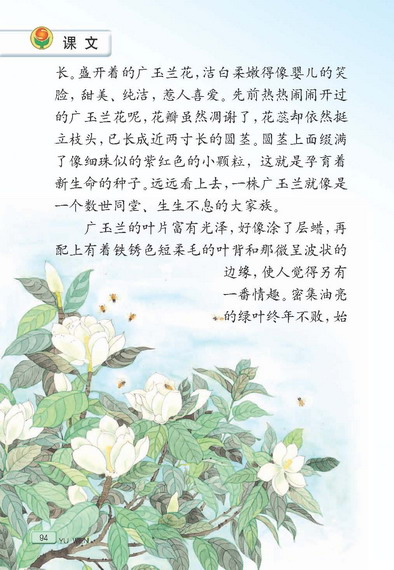 课文
长。盛开着的广玉兰花，洁白柔嫩得像婴儿的笑
脸，甜美、纯洁，惹人喜爱。先前热热闹闹开过
的广玉兰花呢，花瓣虽然凋谢了，花蕊却依然挺
立枝头，已长成近两寸长的圆茎。圆茎上面缀满
了像细珠似的紫红色的小颗粒，这就是孕育着
新生命的种子。远远看上去，一株广玉兰就像是
一个数世同堂、生生不息的大家族。
广玉兰的叶片富有光泽，好像涂了层蜡，再
配上有着铁锈色短柔毛的叶背和那微呈波状的
边缘，使人觉得另有
一番情趣。密集油亮
的绿叶终年不败，始
94 YU WEN